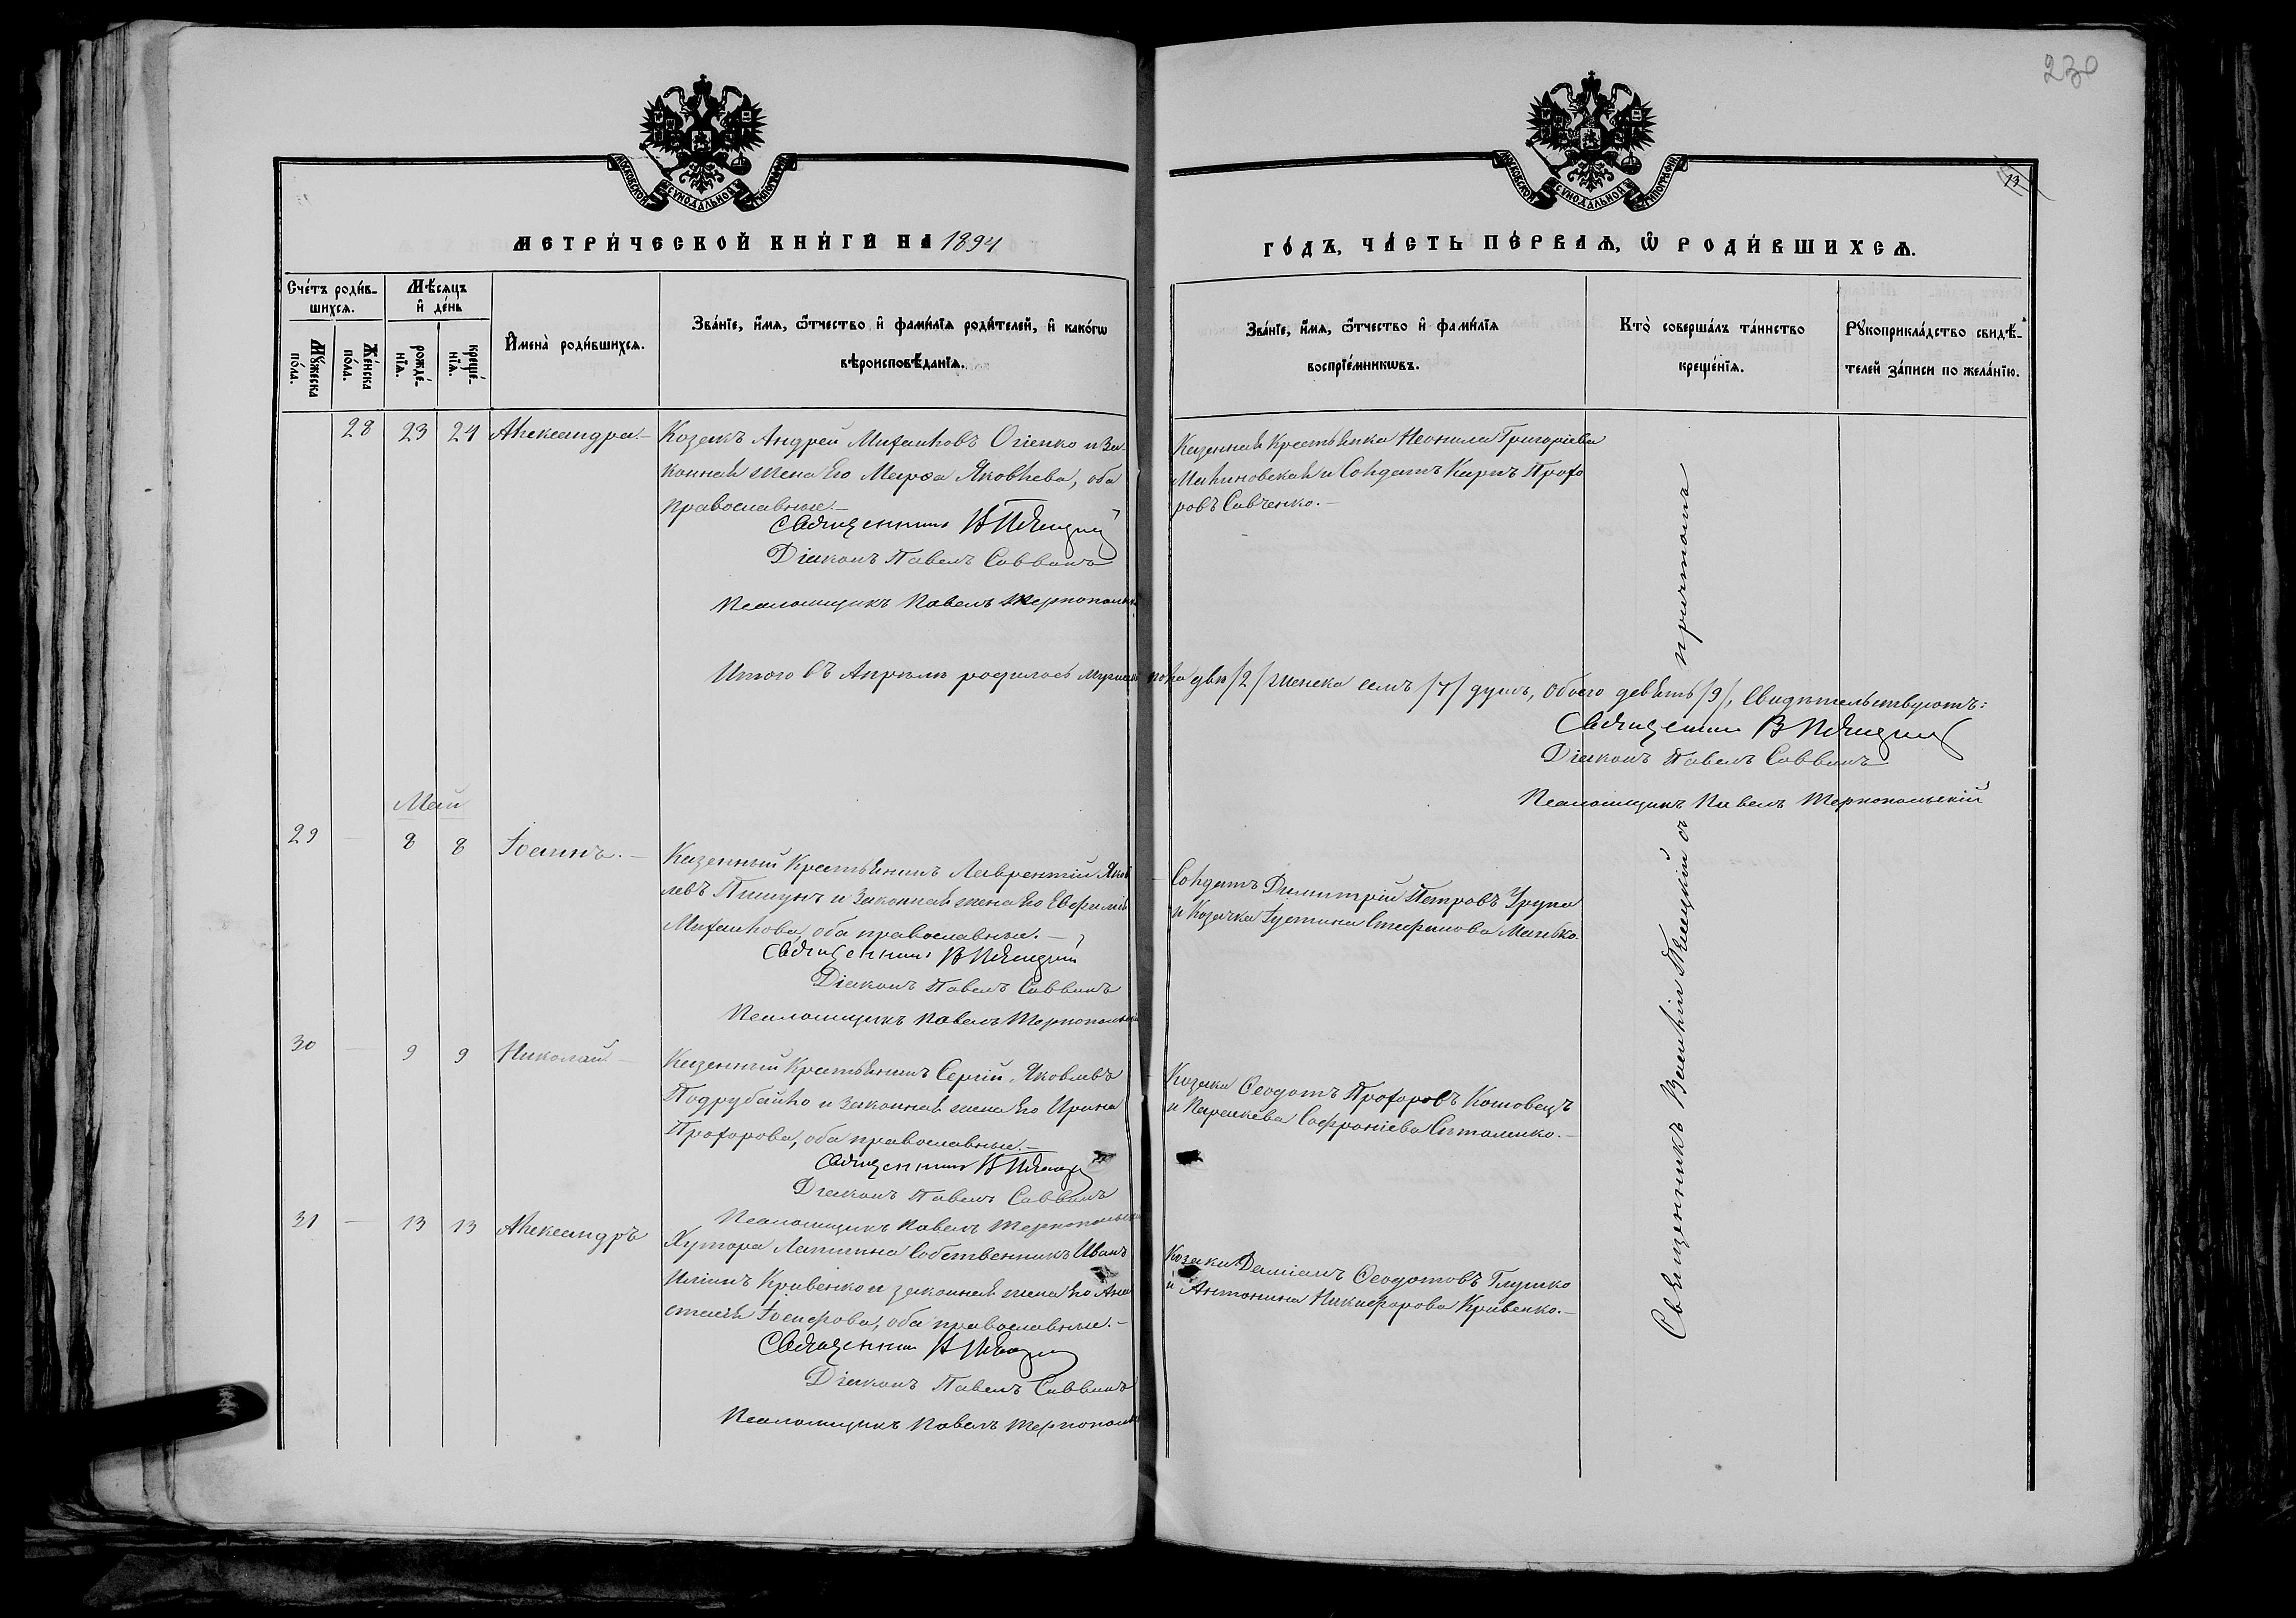 230
13
МОСКОВСКОЙ СѴНОДАЛЬНОЙ ТИПОГРАФІИ
МОСКОВСКОЙ СѴНОДАЛЬНОЙ ТИПОГРАФІИ
МЕТРИ́ЧЕСКОЙ КНИ́ГИ НА 1894
ГО́ДЪ, ЧА́СТЬ ПЕ́РВАѦ, Ѡ҆ РОДИ́ВШИХСѦ.
Сче́тъ роди́в-
шихсѧ.
Мѣ́сѧцъ
и҆ де́нь
Мꙋ́жеска
по́ла.
Же́нска
по́ла.
рожде́-
нїѧ.
креще́-
нїѧ.
И҆мена̀ роди́вшихсѧ.
Зва́нїе, и҆́мѧ, ѻ҆́тчество и҆ фами́лїѧ роди́телей, и҆ како́гѡ
вѣроисповѣ́данїѧ.
Зва́нїе, и҆́мѧ, ѻ҆́тчество и҆ фами́лїѧ
воспрїе́мникѡвъ.
Кто̀ соверша́лъ та́инство
креще́нїѧ.
Рꙋкоприкла́дство свидѣ́-
телей за́писи по жела́нїю.
28 23 24 Александра.–
Козакъ Андрей Михаиловъ Огіенко и За-
конная жена его Марѳа Яковлева, оба
православные.–
Священникъ В
Діаконъ Павелъ Саввинъ
Псаломщикъ Павелъ Тернопольскій
Казенная Крестьянка Неонила Григоріева
Малиновская и Солдатъ Карпъ Прохо
ровъ Савченко.–
Итого въ Апрѣлѣ родилось мужеска пола два /2/ женска семь /7/ душъ, обоего девять /9/, Свидѣтельствуютъ:
Священникъ В
Діаконъ Павелъ Саввинъ
Псаломщикъ Павелъ Тернопольскій
Май
29 – 8 8 Іоаннъ.–
Казенный Крестьянинъ Лаврентій Яков
левъ Пишунъ и Законная жена его Евфимія
Михаилова, оба православные.–
Священникъ В
Діаконъ Павелъ Саввинъ
Псаломщикъ Павелъ Тернопольскій
Солдатъ Димитрій Петровъ
и Козачка Іустина Стефанова
30 – 9 9 Николай–
Казенный Крестьянинъ Сергій Яковлевъ
Подрубайло и законная жена его Ирина
Прохорова, оба православные.–
Священникъ В
Діаконъ Павелъ Саввинъ
Псаломщикъ Павелъ Тернопольскій
Козаки Ѳеодотъ Прохоровъ Котовецъ
и Параскева Софроніева Ситаленко.–
31 – 13 13 Александръ
Хутора Лапшина Собственникъ Иванъ
Иліинъ Кривенко и законная жена его Ана
стасія Іосифова, оба православные.–
Священникъ В
Діаконъ Павелъ Саввинъ
Псаломщикъ Павелъ Тернопольскій
Козаки Даміанъ Ѳеодотовъ Глушко
и Антонина Никифорова Кривенко.–
Священникъ Василій съ причтомъ